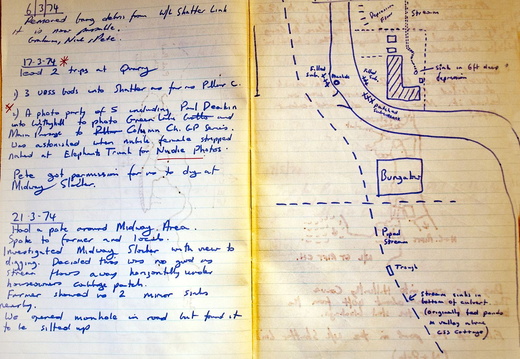 6/3/74
Removed long debris from u/s Shatter Link
it is now passable.
Graham, Nick, Pete.
17-3-74 *
Lead 2 trips at Quarry
1) 3 into Shatter as far as Pillar C.
2) A photo party of 5 including Paul Deakin
into Withyhill to photo Green Lake and
Main Passage to Column Ch. GP
Was astonished when nubile female stripped
naked at Elephants Trunk for Nudie Photos.
Pete got permission for us to dig at
Midway Slocker.
21-3-74
Had a poke around Midway Area.
Spoke to farmer and locals.
Investigated Midway Slocker with view to
digging. Decided this was no good as
stream flows away horizontally under
houseowners cabbage patch.
Farmer showed us 2 minor sinks
nearby.
We opened manhole in road but found it
to be silted up
Depression
Stream
Sink in 6ft deep
depression
Filled
Manhole
Filled
XXX
Bungalow
Piped
Stream
Trough
Stream sinks in
bottom of culvert
(originally fed ponds
in valley above
Cotages)